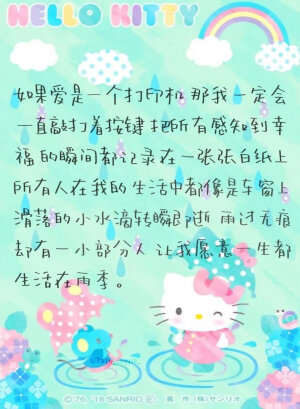 HELLO KITTY
如果爱是一个打印机 那我一定会
一直敲打着按键 把所有感知到幸
福的瞬间都记录在一张张白纸上
所有人在我的生活中都像是车窗上
滑落的小水滴转瞬即逝 雨过无痕
却有一小部分人 让我愿意一生都
生活在雨季。
©'76, '18 SANRIO Ⓔ 著作 (株) サンリオ